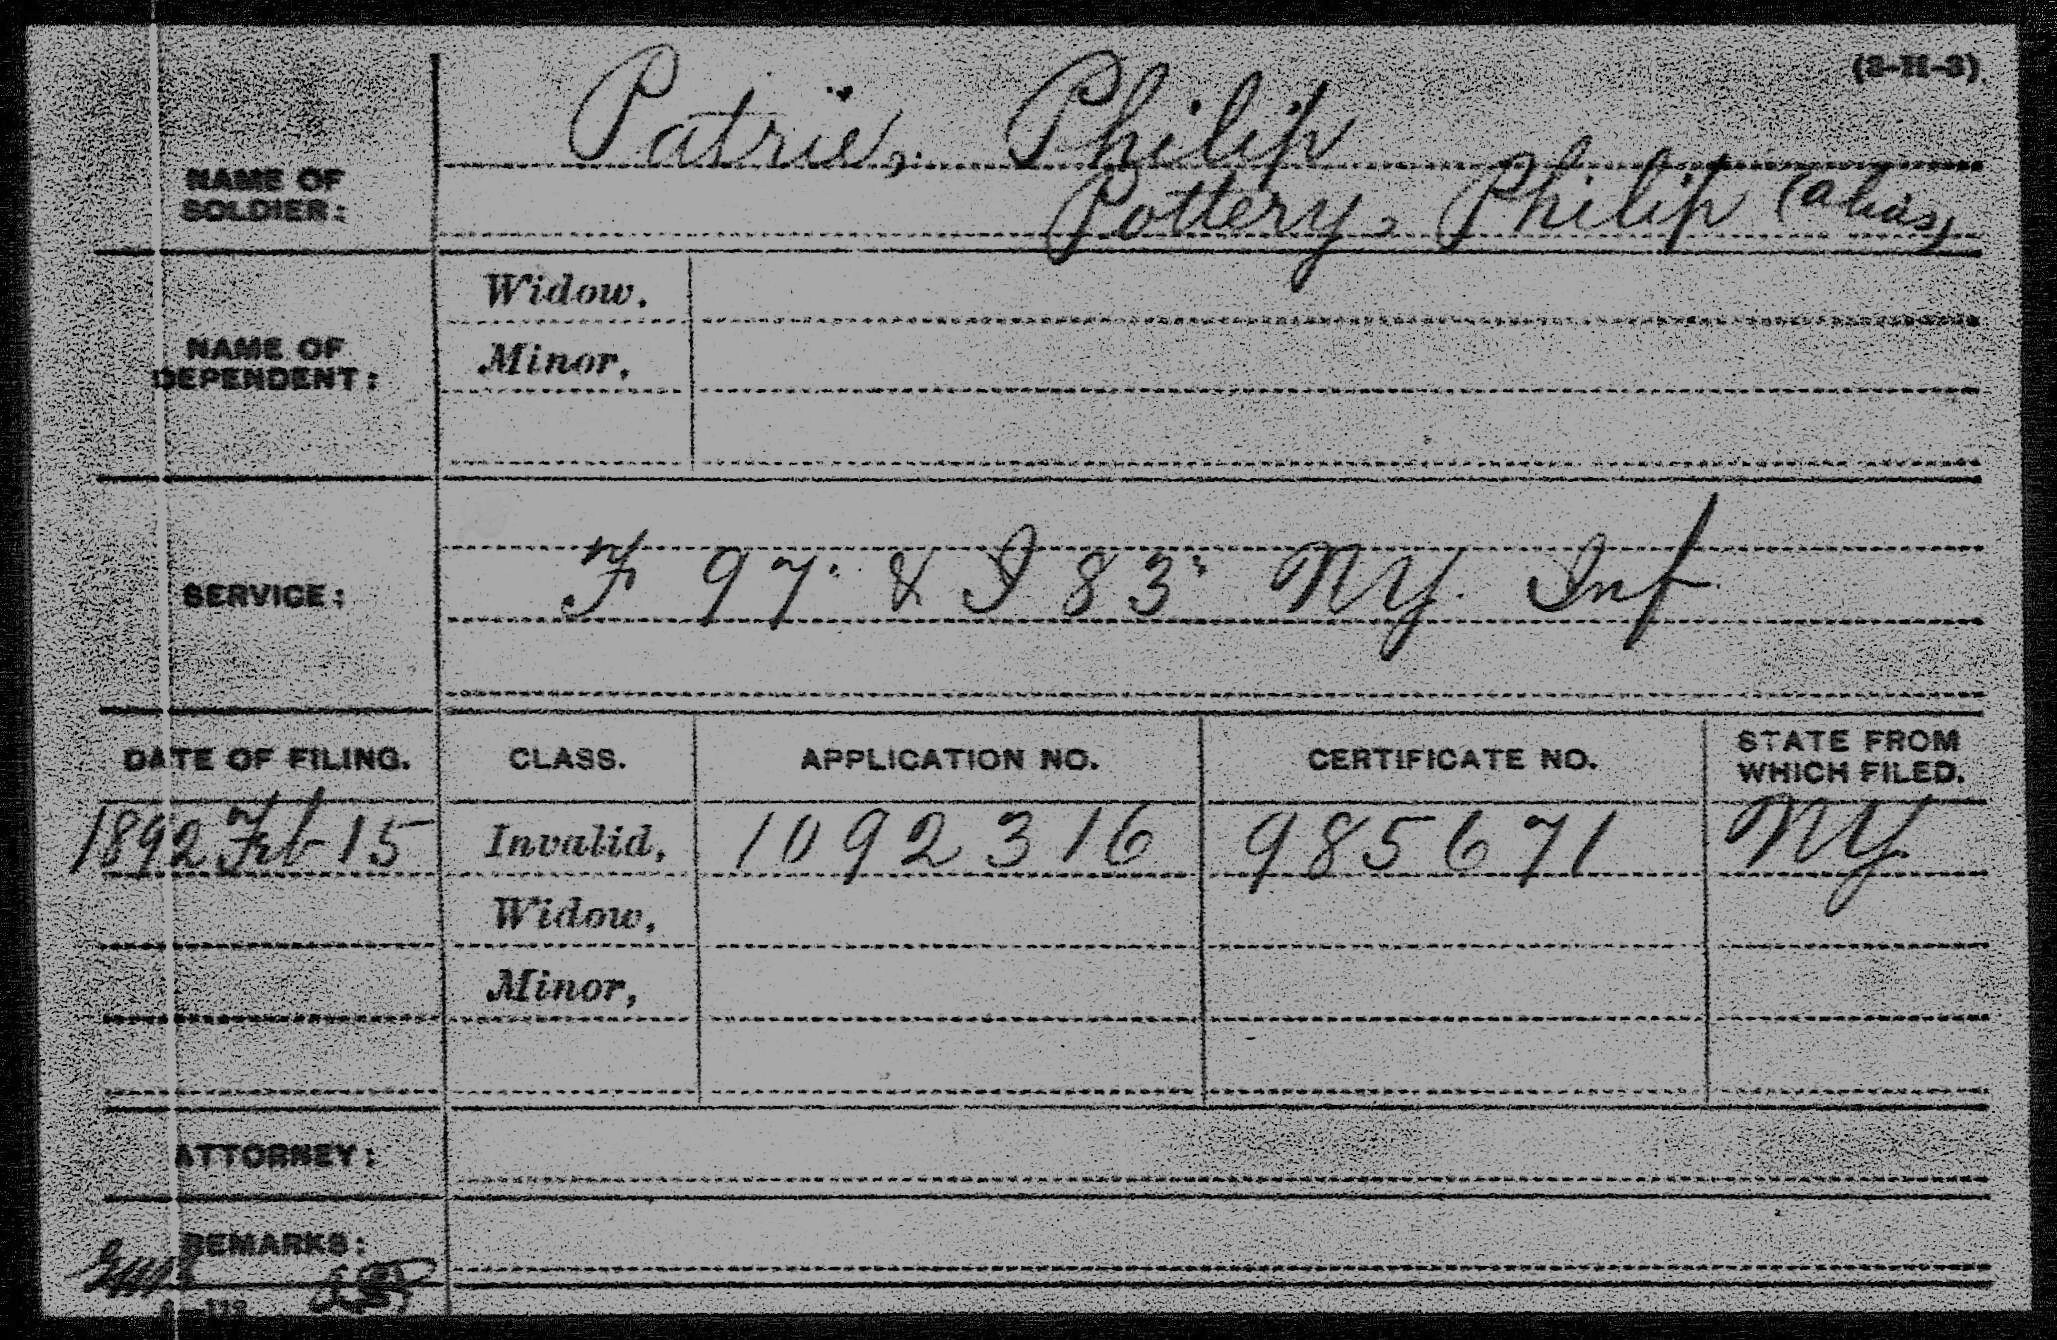 (3-H-3)
NAME OF SOLDIER: Patrie, Philip
Pottery, Philip (alias)
NAME OF DEPENDENT:
Widow.
Minor,
SERVICE: F 97. & I 83. NY. Inf.
DATE OF FILING. CLASS. APPLICATION NO. CERTIFICATE NO. STATE FROM WHICH FILED.
1892 Feb 15 Invalid, 1092316 985671 NY.
Widow,
Minor,
ATTORNEY:
REMARKS: